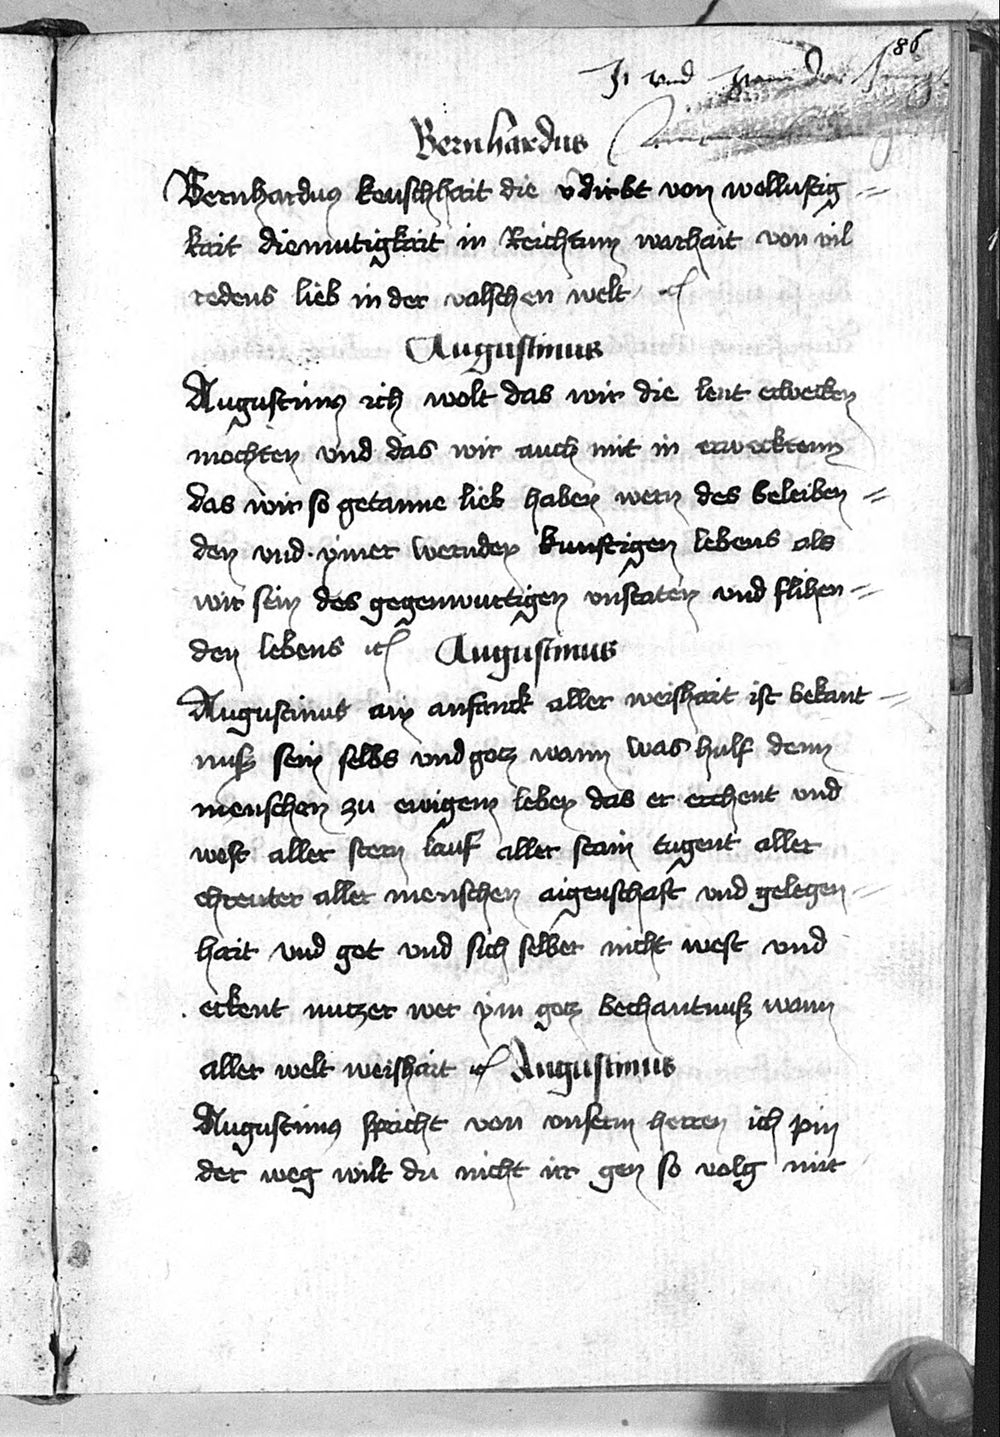 86
Jn vnd
Bernhardus
Bernhardus keuschhait die v̄dirbt von wollustig=
kait diemutigkait in Reichtum warhait von vil
redens lieb in der valschen welt ⁊c
Augustinus
Augustinus ich wolt das wir die leut erwecken
mochten vnd das wir auch mit in erwecktenn
das wir so getanne lieb haben wern des beleiben=
den vnd ymer wernden kunftigen lebens als
wir sein des gegenwurtigen vnstaten vnd flihen=
den lebens ⁊c Augustinus
Augustinus ain anfanck aller weishait ist bekant=
nuß sein selbs vnd gotz wann was hulf denn
menschen zu ewigem leben das er erchent vnd
west aller stern lauf aller stain tugent aller
chreuter aller menschen aigenschaft vnd gelegen=
hait vnd got vnd sich selber nicht west vnd
erkent nutzer wer ym gotz bechantnuß wann
aller welt weishait ⁊c Augustinus
Augustinus spricht von vnserm herren ich pin
der weg wilt du nicht irr gen so volg mir